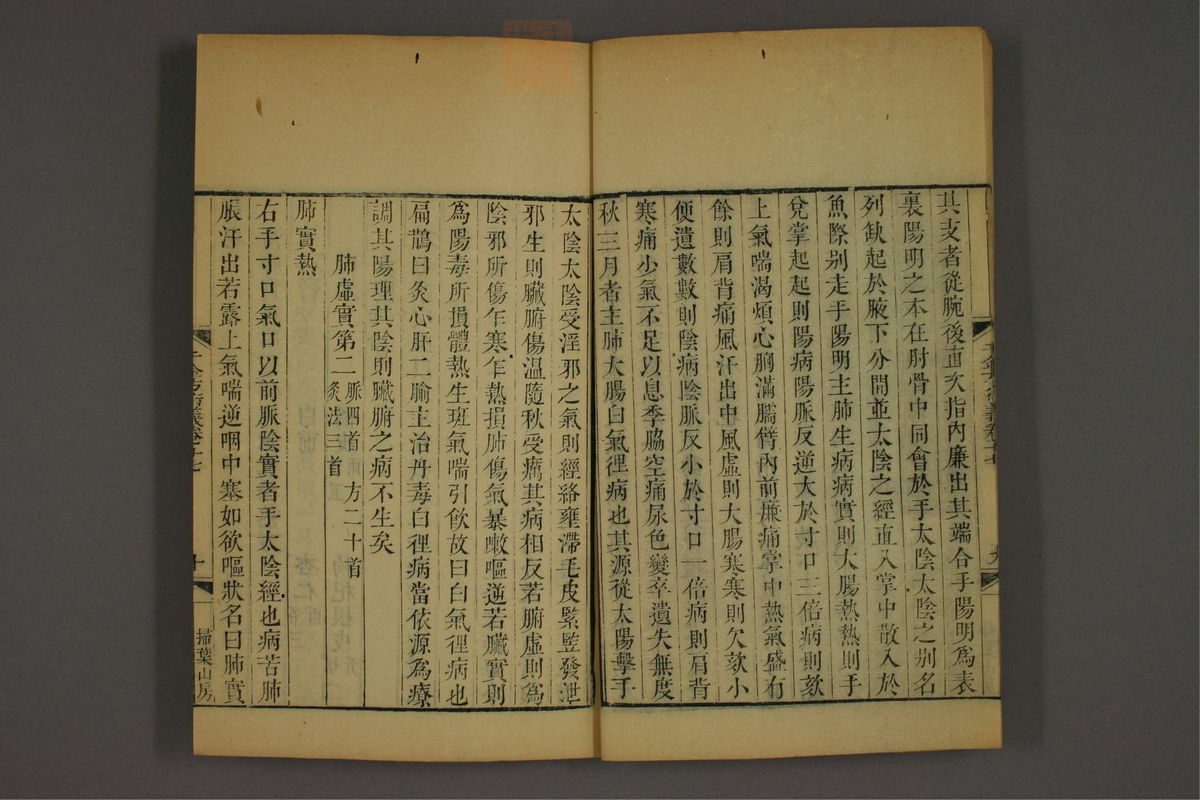 其支者從腕後直次指內廉出其端合手陽明爲表
裏陽明之本在肘骨中同會於手太陰太陰之别名
列缺起於腋下分間並太陰之經直入掌中散入於
魚際别走手陽明主肺生病病實則大腸熱熱則手
兌掌起起則陽病陽脈反逆大於寸口三倍病則欬
上氣喘渴煩心胸滿臑臂內前廉痛掌中熱氣盛有
餘則肩背痛風汗出中風虛則大腸寒寒則欠欬小
便遺數數則陰病陰脈反小於寸口一倍病則肩背
寒痛少氣不足以息季脇空痛尿色變卒遺失無度
秋三月者主肺大腸白氣狸病也其源從太陽擊手
太陰太陰受淫邪之氣則經絡壅滯毛皮緊豎發泄
邪生則臟腑傷温隨秋受癘其病相反若腑虛則爲
陰邪所傷乍寒乍熱損肺傷氣暴嗽嘔逆若臟實則
爲陽毒所損體熱生斑氣喘引飲故曰白氣狸病也
扁鵲曰灸心肝二腧主治丹毒白狸病當依源爲療
調其陽理其陰則臟腑之病不生矣
肺虛實第二 脈四首 方二十首
灸法三首
肺實熱
右手寸口氣口以前脈陰實者手太陰經也病苦肺
脹汗出若露上氣喘逆咽中塞如欲嘔狀名曰肺實
千金方衍義卷十七
十
掃葉山房